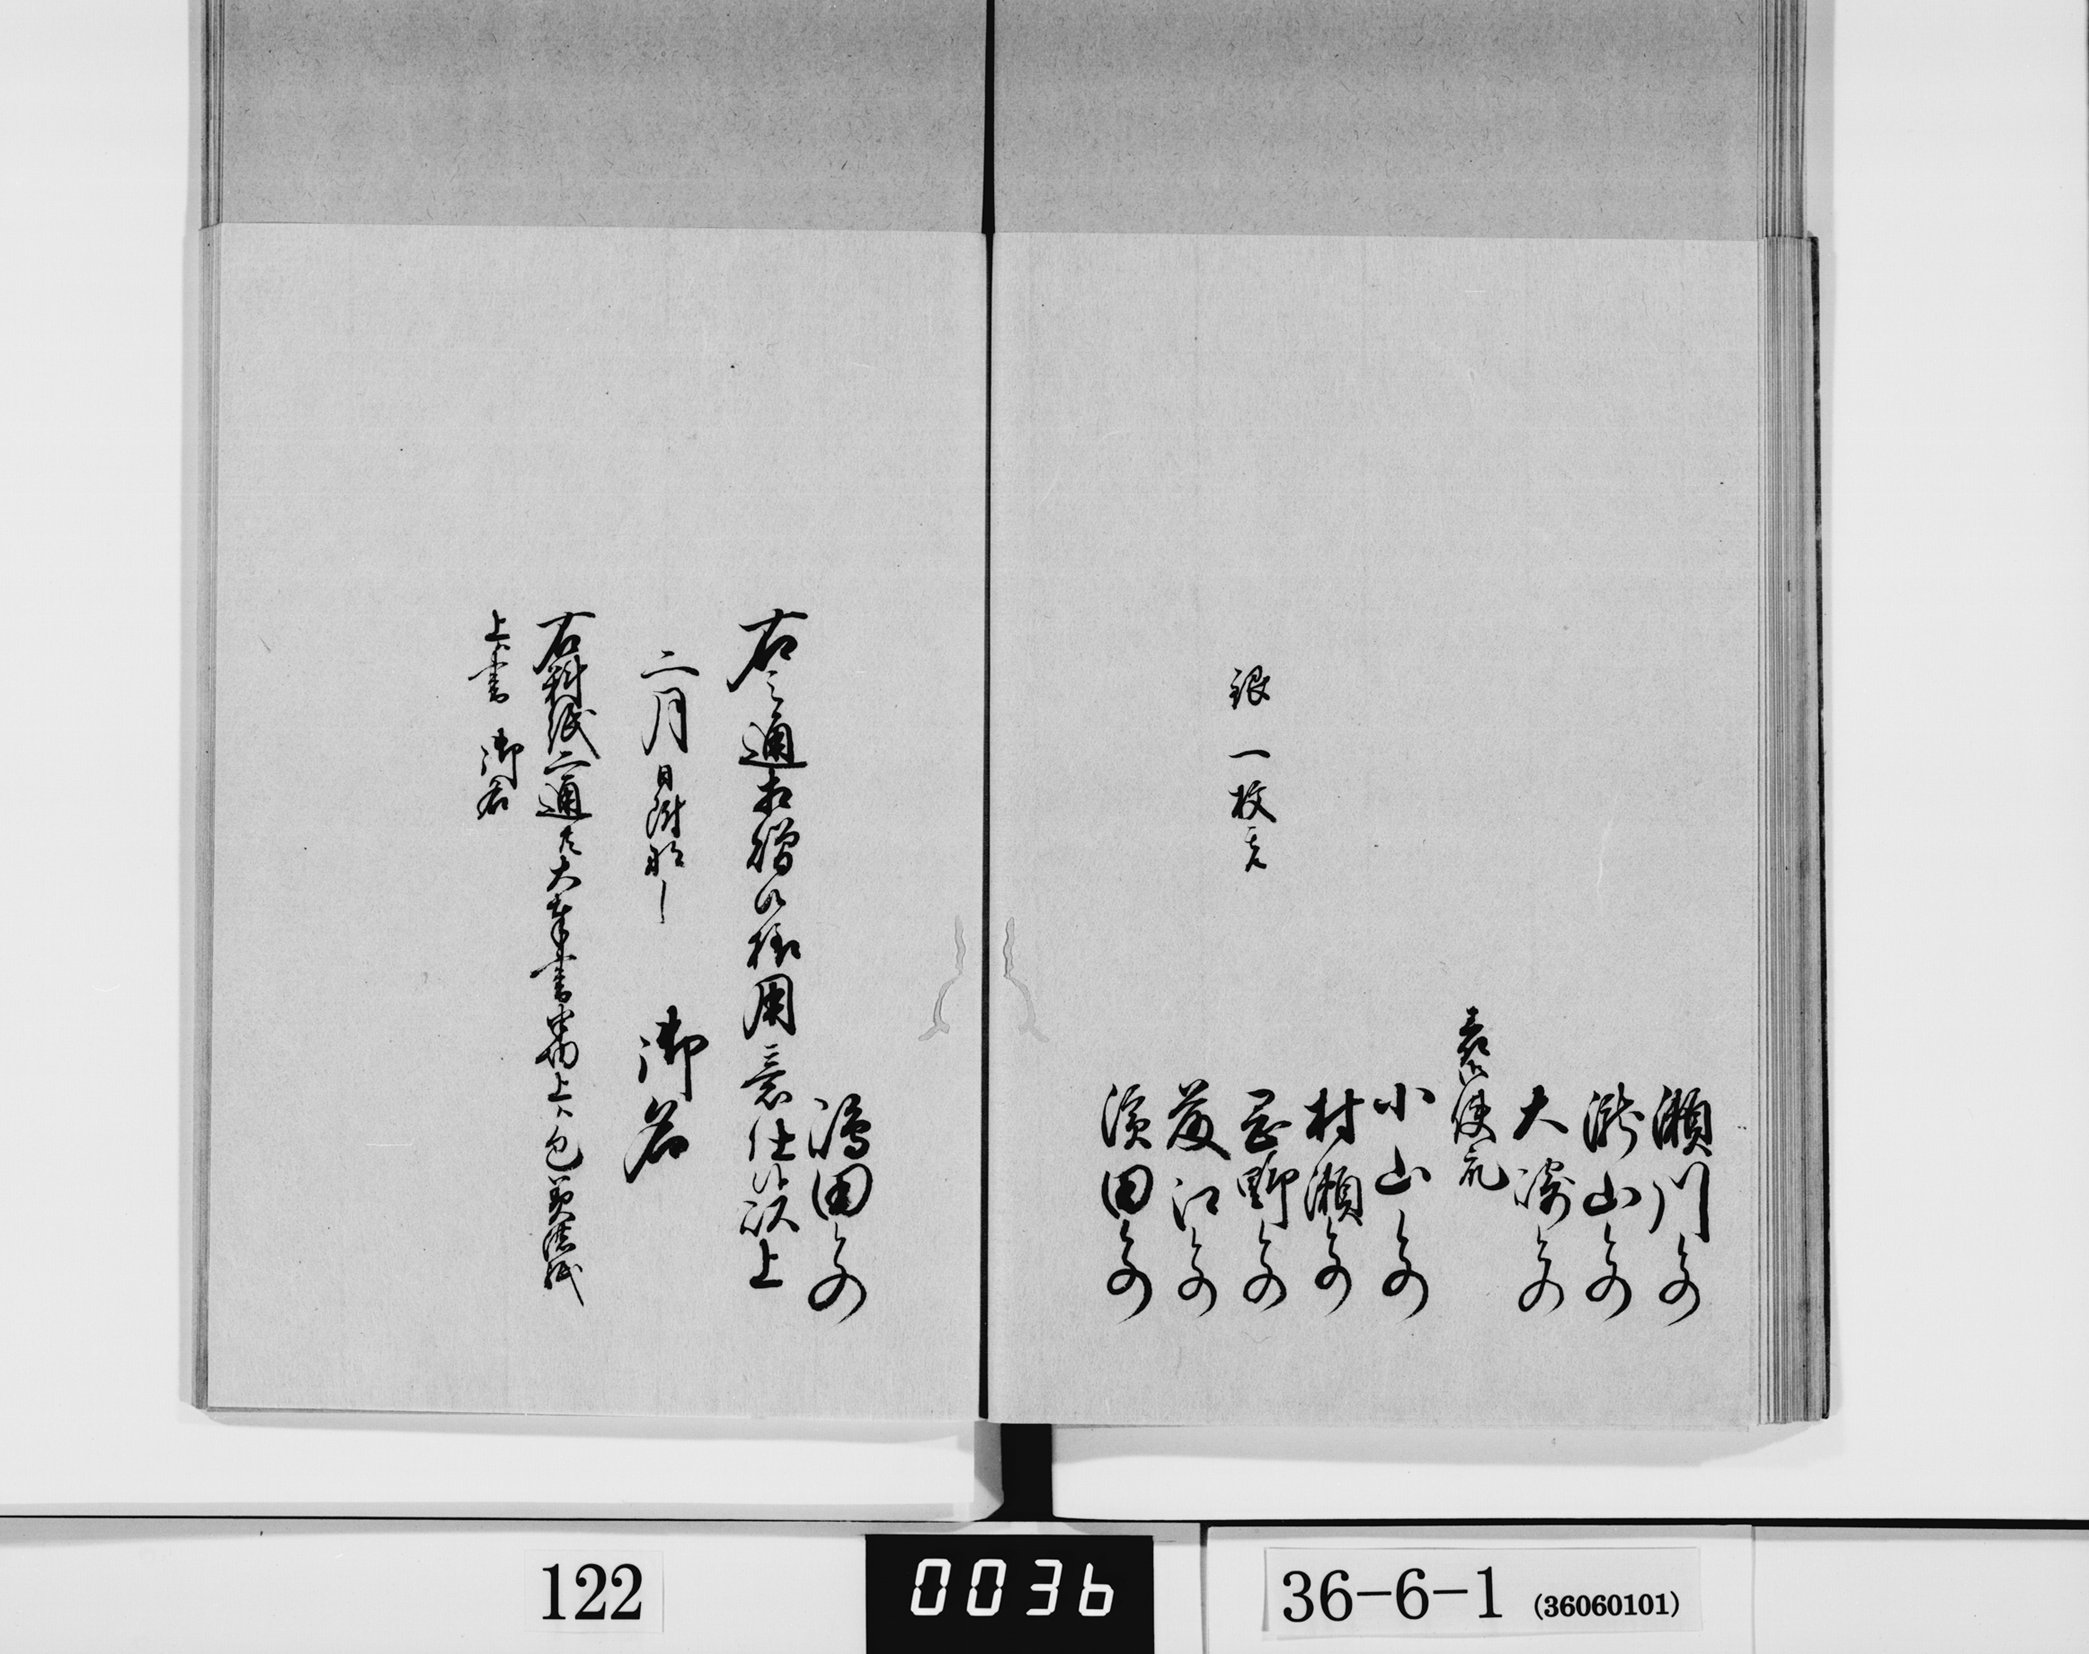 瀬川との
瀧山との
大崎との
表御使番
小山との
村瀬との
銀一枚充
岩野との
藤江との
濱田との
嶋田との
右之通相贈候様用意仕候以上
二月日附なし 御名
右料紙二通共大奉書半切上ハ包美濃紙
上ハ書 御名
122
0036
36-6-1 (36060101)